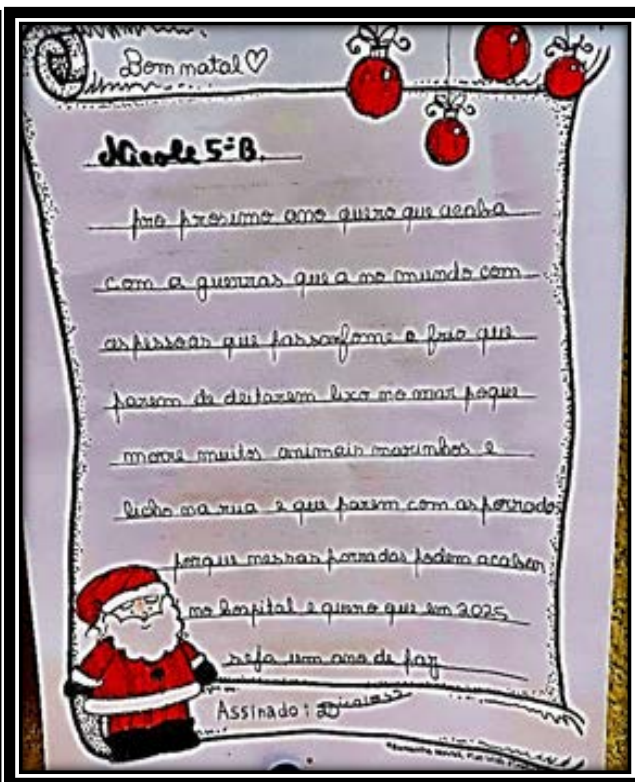 Bom natal ♡
Nicole 5ºB.
pro prosimo ano quero que acaba
com a guerras que a no mundo com
as pessoas que passam fome e frio que
parem de deitarem lixo no mar poque
morre muitos animais marinhos e
licho na rua e que parem com as porradas
porque nessas porradas podem acabar
no hospital e quero que em 2025
seja um ano de paz
Assinado: